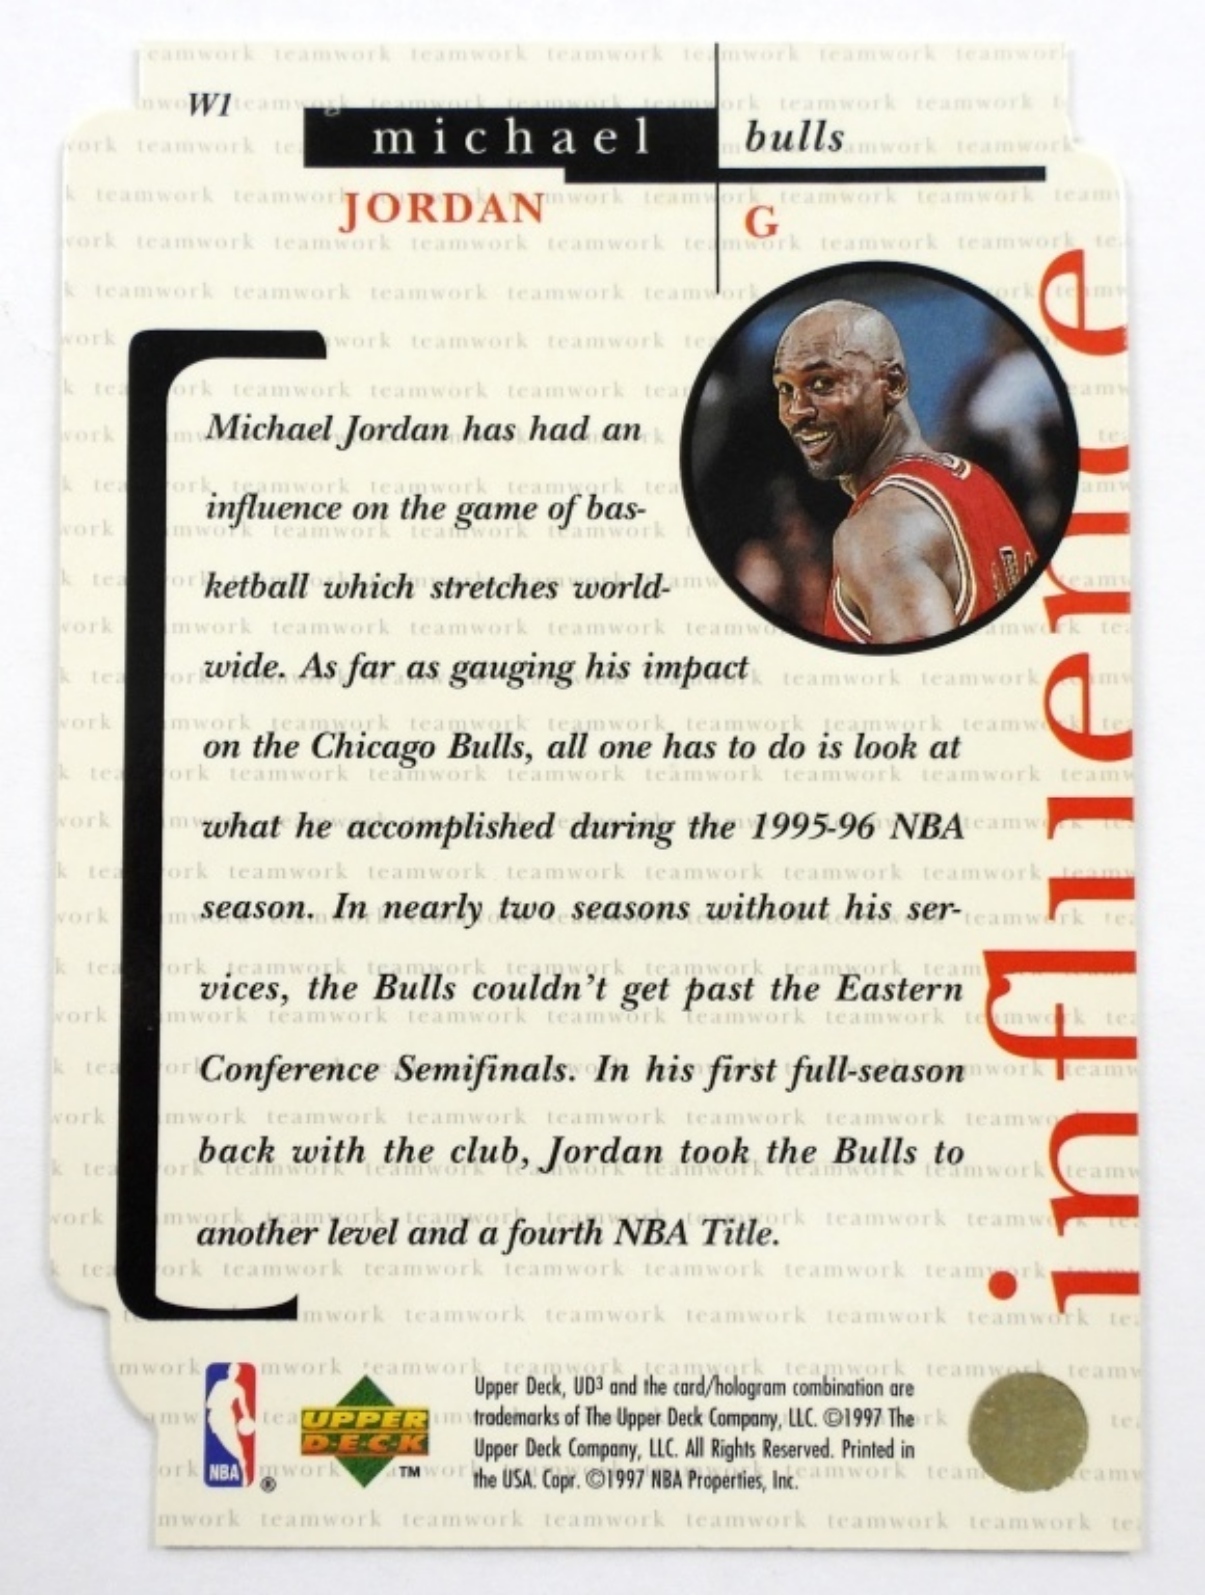 W1
michael
bulls
JORDAN
G
Michael Jordan has had an
influence on the game of bas-
ketball which stretches world-
wide. As far as gauging his impact
on the Chicago Bulls, all one has to do is look at
what he accomplished during the 1995-96 NBA
season. In nearly two seasons without his ser-
vices, the Bulls couldn't get past the Eastern
Conference Semifinals. In his first full-season
back with the club, Jordan took the Bulls to
another level and a fourth NBA Title.
influence
NBA ®
UPPER
DECK
™
Upper Deck, UD3 and the card/hologram combination are
trademarks of The Upper Deck Company, LLC. ©1997 The
Upper Deck Company, LLC. All Rights Reserved. Printed in
the USA. Copr. ©1997 NBA Properties, Inc.
teamwork teamwork teamwork teamwork teamwork teamwork